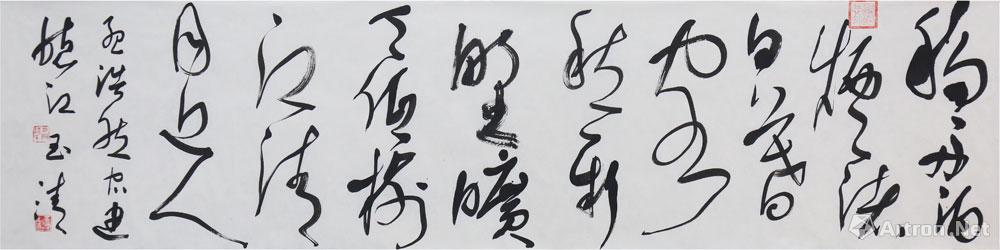 移舟泊
煙渚
日暮
客
愁新
野曠
天低樹
江清
月近人
孟浩然宿建
德江 玉清
Artron.Net